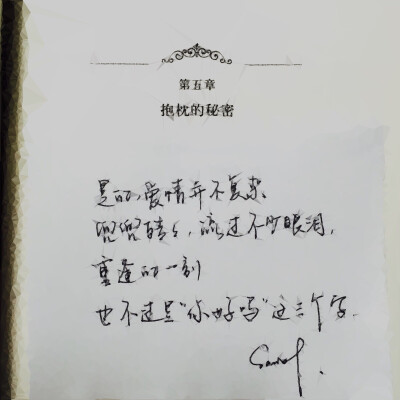 第五章
抱枕的秘密
是的，爱情并不复杂。
兜兜转々，流过不少眼泪，
重逢的一刻
也不过是“你好吗”这三个字.